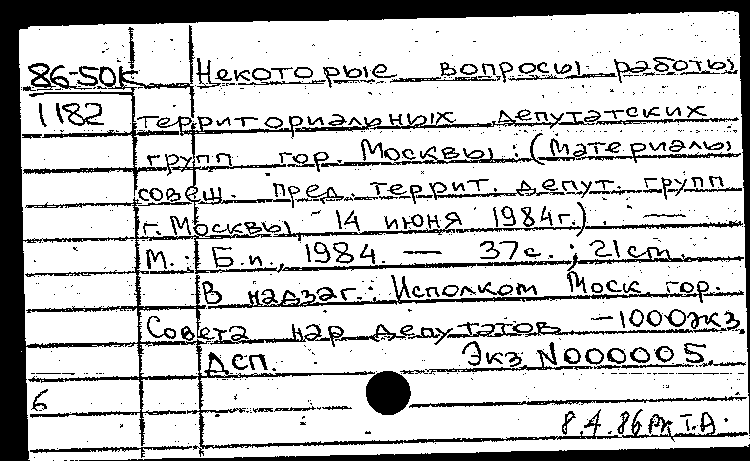 86-50К Некоторые вопросы работы
1182 территориальных депутатских
групп гор. Москвы : (Материалы
совещ. пред. террит. депут. групп
г. Москвы, 14 июня 1984г.). —
М. : Б.и., 1984. — 37с. ; 21см.
В надзаг.: Исполком Моск. гор.
Совета нар депутатов —1000экз.
ДСП. Экз. N000005.
6
8.4.86 РК Т.А.